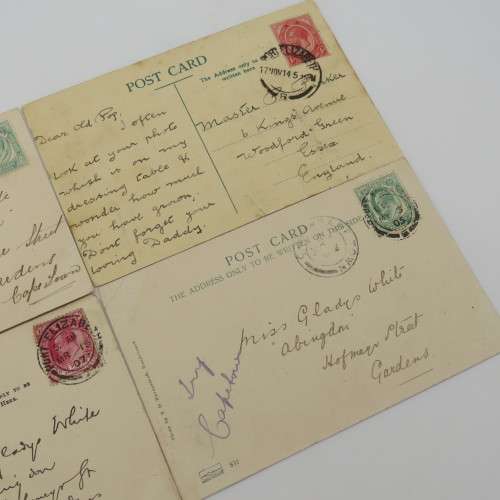 POST CARD
The Address only to be
written here
17 NOV 14
Dear Old Pop, I often
look at your photo
which is on my
dressing table &
wonder how much
you have grown,
Dont forget your
loving Daddy.
Master
6 Kings Avenue
Woodford Green
Essex
England.
Street
Gardens
Cape Town
POST CARD
THE ADDRESS ONLY TO BE WRITTEN ON THIS SIDE
Miss Gladys White
Abingdon
Hofmeyr Street
Gardens
Capetown
PORT ELIZABETH
07
ONLY TO BE
HERE.
Gladys White